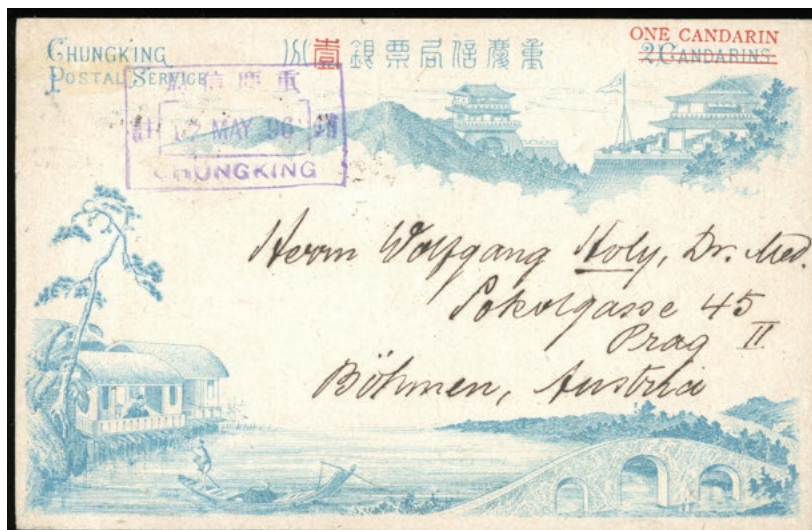 CHUNGKING
POSTAL SERVICE
重慶信局票銀壹分
ONE CANDARIN
2 CANDARINS
重慶信局
MAY 96
CHUNGKING
Herrn Wolfgang Holy, Dr. Med.
Sokolgasse 45
Prag II
Böhmen, Austria